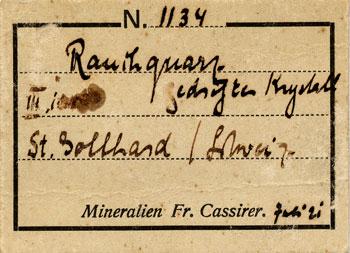 N. 1134
Rauchquarz
III gedrehter Krystall
St. Gotthard / Schweiz
Mineralien Fr. Cassirer. Juli 21